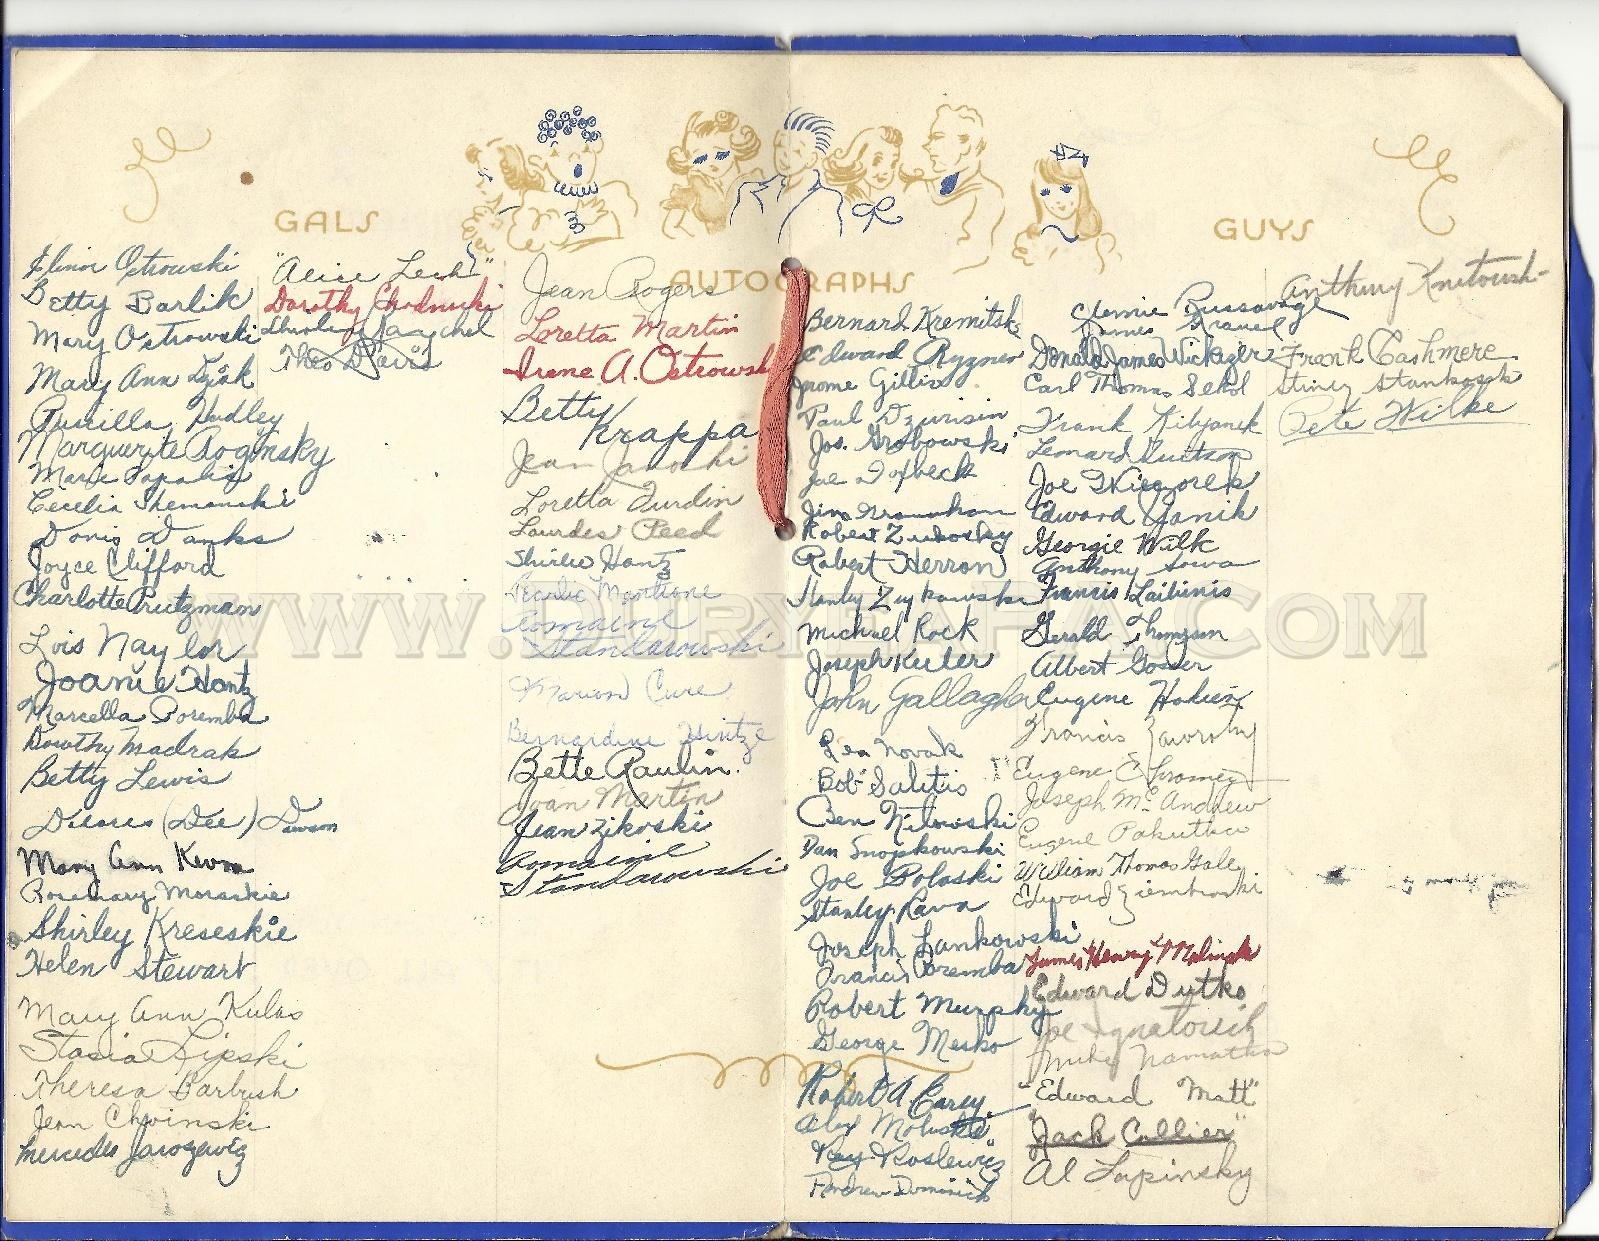 GALS
AUTOGRAPHS
GUYS
Elinor Ostrowski
Betty Barlik
Mary Ostrowski
Mary Ann
Hudley
Marguerite Roginsky
Marie
Cecelia Shemanski
Doris Danks
Joyce Clifford
Charlotte Prutzman
Lois Naylor
Joanie Hontz
Marcella Poremba
Dorothy Madrak
Betty Lewis
Dolores (Dee) Dawson
Mary Ann
Rosemary
Shirley Kreseskie
Helen Stewart
Mary Ann Kulas
Stasia Lipski
Theresa Barbush
Jean Chwinski
Mercedes Jarozewiz
"Alice Lech"
Dorothy
Shirley
Theo Davis
Jean Rogers
Loretta Martin
Irene A. Ostrowski
Betty
Krappa
Jean Janoski
Loretta Durdin
Lourdes Reed
Shirlee Hontz
Pearlie Martione
Romaine
Standarowski
Marion Cure
Bernardine Hintze
Bette Raulin.
Joan Martin
Jean Zikoski
Romaine
Standarowski
Bernard Kremitsk
Edward Ryzner
Jerome Gillis
Paul Dzurisin
Jos. Grabowski
Joe
Jim
Robert Zukosky
Robert Herron
Stanley Zuykowski
Michael Rock
Joseph Keeler
John Gallagher
Leo Novak
"Bob" Salitis
Ben
Dan Snopkowski
Joe Polaski
Stanley Rava
Joseph Lankowski
Francis Poremba
Robert Murphy
George Mesko
Robert A. Carey
Alex
Ray Roslewicz
Andrew Dominick
Clemie Bussavage
James
Donald James
Carl Thomas Sekol
Frank Kilyanek
Leonard
Joe Wiezorek
Edward Yanik
Georgie Wilk
Anthony Sowa
Francis Laibinis
Gerald Thomson
Albert Goser
Eugene
Francis
Eugene
Joseph McAndrew
Eugene
William Thomas Gale
Edward
James Henry
Edward Dutko
Joe Ignatovich
Mike
"Edward Matt"
"Jack Collier"
Al Lapinsky
Anthony
Frank Cashmere
Stankosek
Pete Wilke
WWW.DURYEAPA.COM